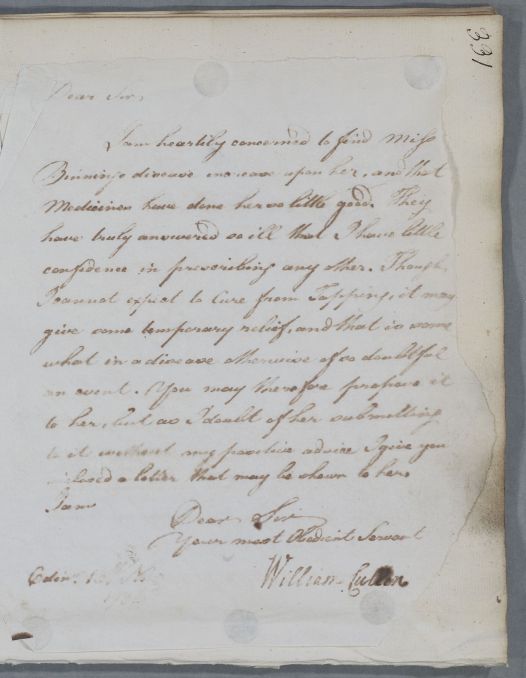 331
Dear Sir,
I am heartily concerned to find Miss
Binning's disease increase upon her, and that
Medicines have done her so little good. They
have truly answered so ill that I have little
confidence in prescribing any other. Though
I cannot expect to Cure from Tapping, it may
give some temporary relief, and that is some
what in a disease otherwise of so doubtful
an event. You may therefore prepare it
to her, but as I doubt of her submitting
to it without my positive advice I give you
inclosed a letter that may be shown to her.
I am
Dear Sir
Your most Obedient Servant
William Cullen
Edinr.